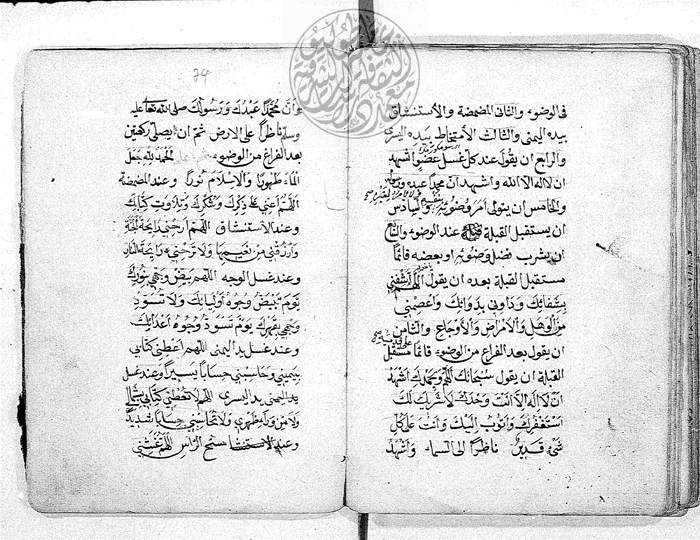 فى الوضوء والثانى المضمضة والاستنشاق
بيده اليمنى والثالث الامتخاط بيده اليسرى
والرابع ان يقول عند كل غسل عضو اشهد
ان لا اله الا الله واشهد ان محمدا عبده ورسوله
والخامس ان يتولى امر وضوئه والسادس
ان يستقبل القبلة عند الوضوء والسابع
ان يشرب فضل وضوئه او بعضه قائما
مستقبل القبلة بعده ان يقول اللهم اشفنى
بشفائك وداونى بدوائك واعصمنى
من الوهل والامراض والاوجاع والثامن
ان يقول بعد الفراغ من الوضوء قائما مستقبل
القبلة ان يقول سبحانك اللهم وبحمدك اشهد
ان لا اله الا انت وحدك لا شريك لك
استغفرك واتوب اليك وانت على كل
شئ قدير ناظرا الى السماء واشهد
74
ان محمدا عبدك ورسولك صلى الله تعالى عليه
وسلم ناظرا على الارض ثم ان يصلى ركعتين
بعد الفراغ من الوضوء الحمد لله جعل
الماء طهورا والاسلام نورا وعند المضمضة
اللهم اعنى على ذكرك وشكرك وتلاوت كتابك
وعند الاستنشاق اللهم ارحنى رايحة الجنة
وارزقنى من نعيمها ولا ترحنى رايحة النار
وعند غسل الوجه اللهم بيض وجهى بنورك
يوم تبيض وجوه اوليائك ولا تسود
وجهى بقهرك يوم تسود وجوه اعدائك
وعند غسل يد اليمنى اللهم اعطنى كتابى
بيمينى وحاسبنى حسابا يسيرا وعند غسل
يد اليسرى اللهم لا تعطنى كتابى بشمالى
ولا من وراء ظهرى ولا تحاسبنى حسابا شديدا
وعند مسح الراس اللهم غشنى